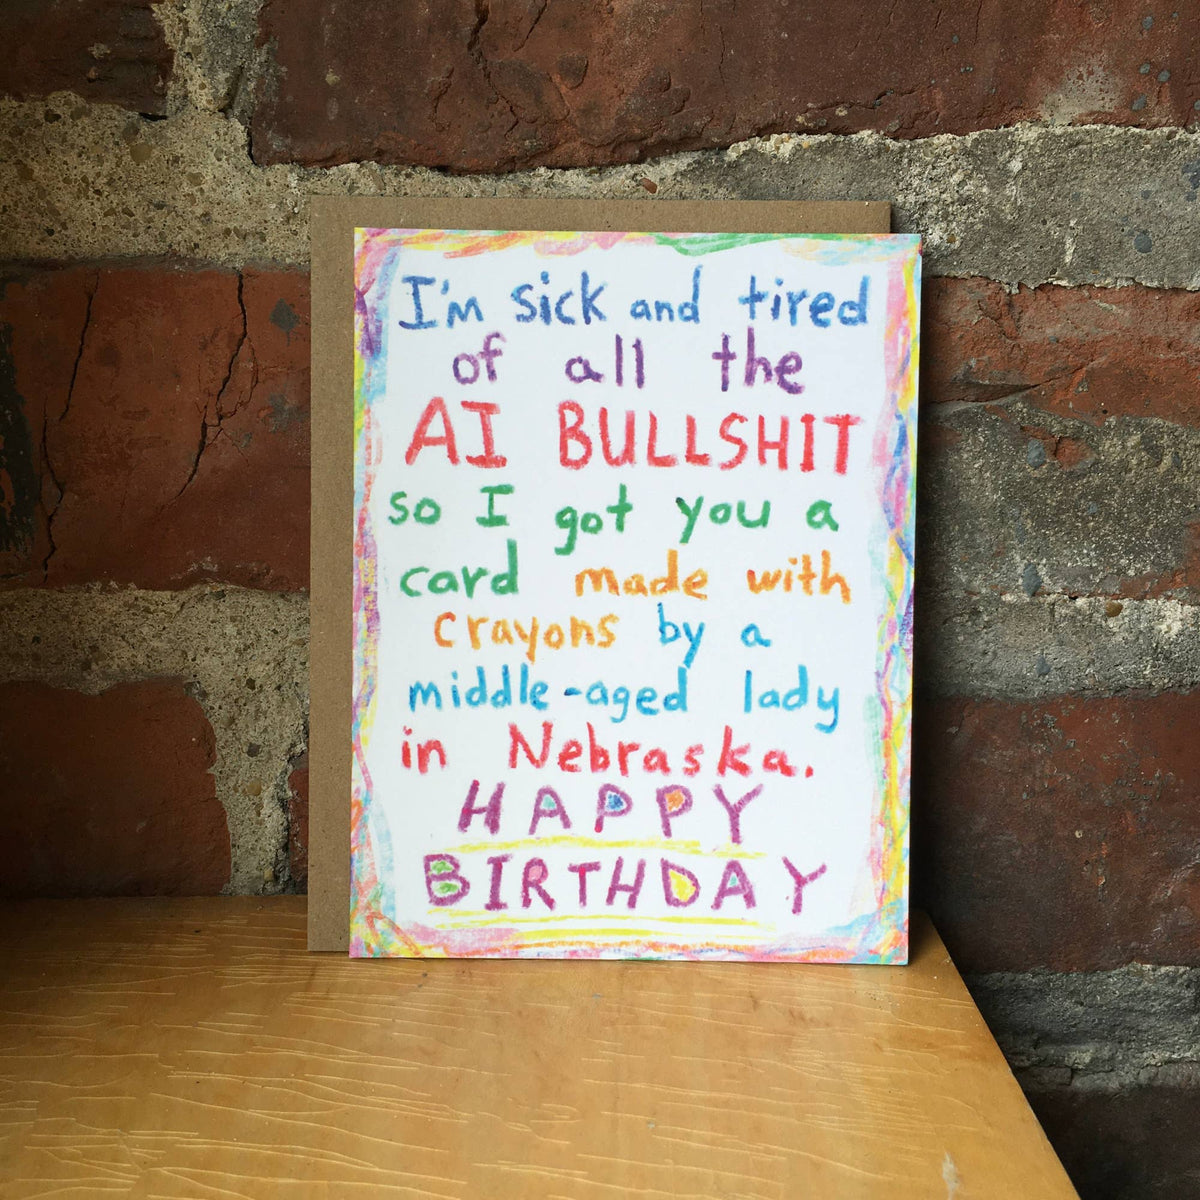 I'm sick and tired
of all the
AI BULLSHIT
so I got you a
card made with
crayons by a
middle-aged lady
in Nebraska.
HAPPY
BIRTHDAY